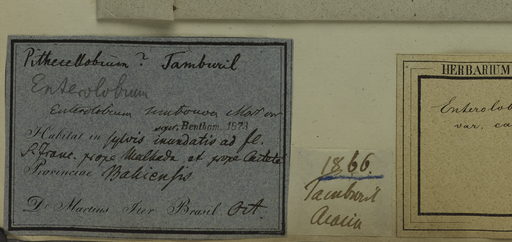 Pithecellobium? Tamburil
Enterolobium
Enterolobium timbouva Mart.
Benthom. 1873
Habitat in sylvis inundatis ad fl.
S. Franc. prope Malhada et prope
Provinciae Bahiensis
De Martius Iter Brasil. Oct.
1866.
Tamburil
Acacia
HERBARIUM
Enterolob
var. ca